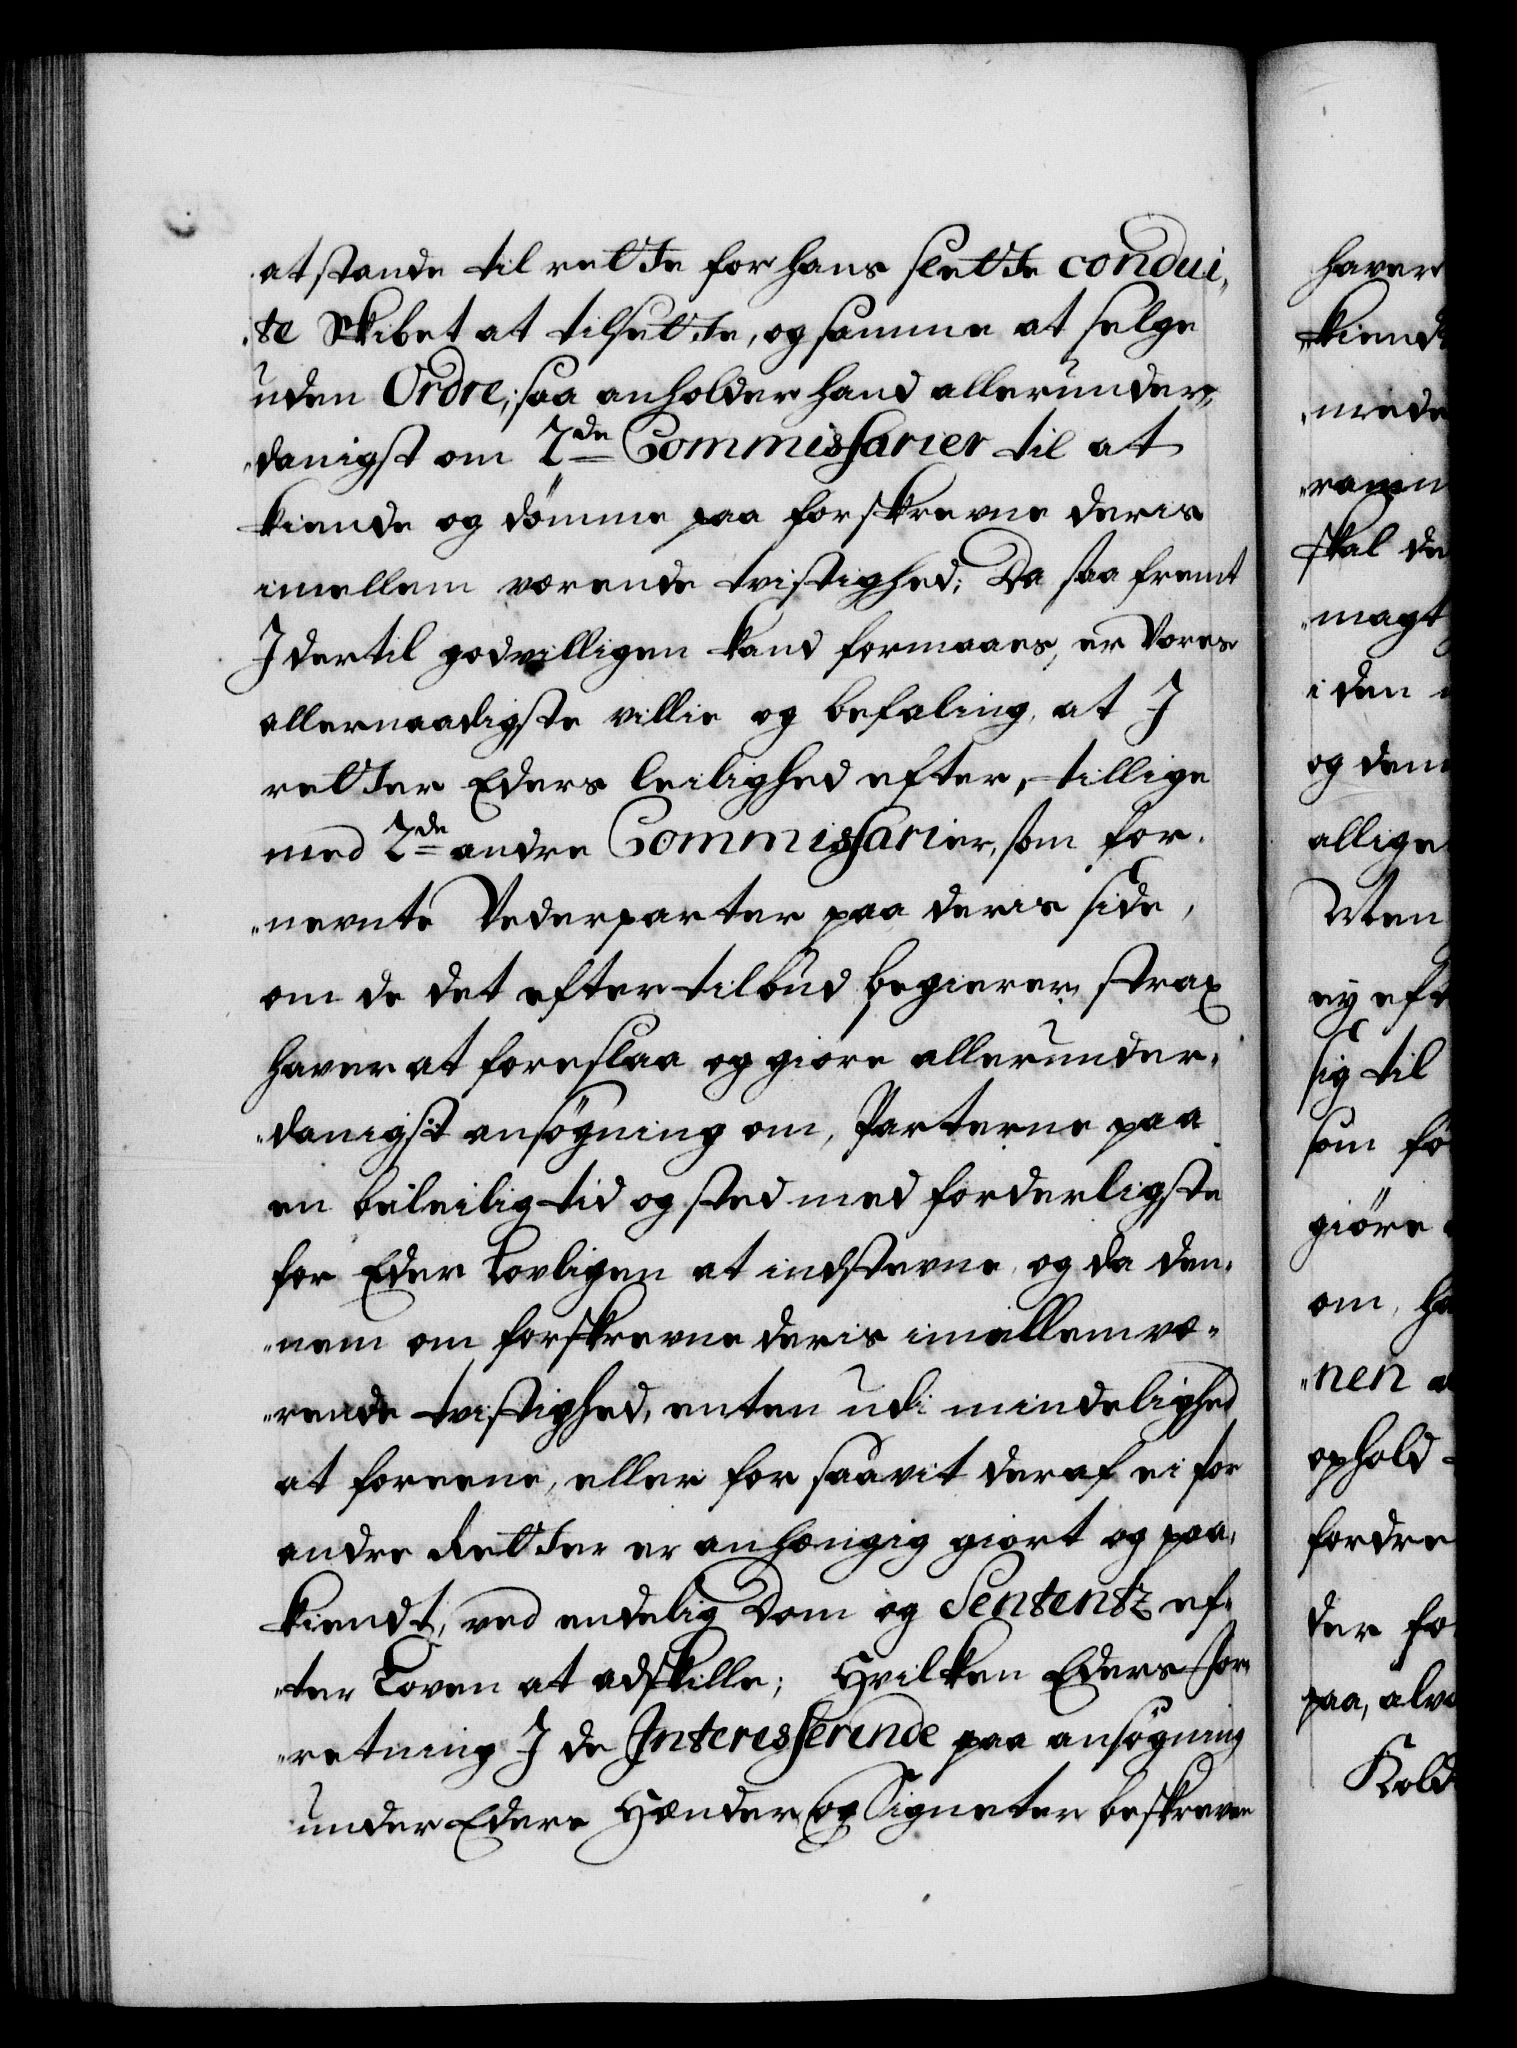 at stande til rette for hans slette condui,
„te Skibet at tilsette, og samme at selge
uden Ordre; saa anholder hand allerunder„
„danigst om 2de Commissarier til at
kiende og dömme paa forskrevne deris
imellem værende tvistighed; Da saa fremt
J dertil godvilligen kand formaaes, er Vores
allernaadigste villie og befaling, at J
retter Eders leilighed efter, tillige
med 2de andre Commissarier, som for„
„nevnte Vederparter paa deris side,
om de det efter tilbud begierer, strax
haver at foreslaa og giöre allerunder„
„danigst ansögning om, Parterne paa
en beleilig tid og sted med forderligste
for Eder lovligen at indstevne, og da den„
„nem om forskrevne deris imellem væ„
„rende tvistighed, enten udi mindelighed
at foreene, eller for saavit deraf ei for
andre Retter er anhængig giort og paa„
kiendt, ved endelig Dom og Sententz ef„
„ter Loven at adskille; Hvilken Eders for„
„retning J de Interesserende paa ansögning
under Eders Hænder og Signeter beskreven
haver
kiend
skal de
magt
i den
og dem
allige
Men
ey eft
sig til
som fo
giöre
om, ha
„nen
ophold
fordre
der fo
paa, alv
Kold